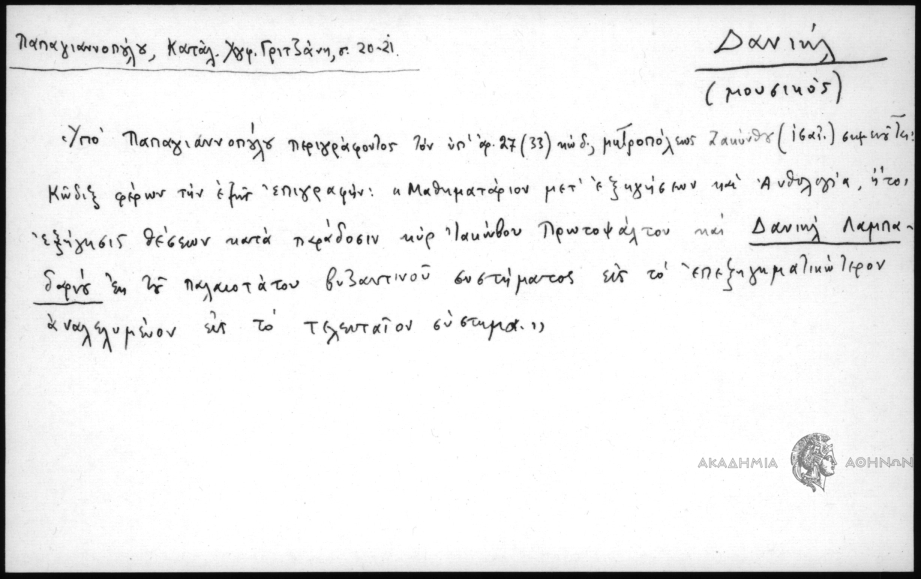 Παπαγιαννοπούλου, Κατάλ. Χφφ. Γριτζάνη, σ. 20-21.
Δανιήλ
(μουσικός)
Ὑπὸ Παπαγιαννοπούλου περιγράφοντος τὸν ὑπ' ἀρ. 27 (33) κώδ. μητροπόλεως Ζακύνθου (ἰσαι.) σημειοῦται:
Κῶδιξ φέρων τὴν ἑξῆς ἐπιγραφήν: «Μαθηματάριον μετ' ἐξηγήσεων καὶ Ἀνθολογία, ἤτοι
ἐξήγησις θέσεων κατὰ παράδοσιν κὺρ Ἰακώβου Πρωτοψάλτου καὶ Δανιὴλ Λαμπα-
δαρίου ἐκ τοῦ παλαιοτάτου βυζαντινοῦ συστήματος εἰς τὸ ἐπεξηγηματικώτερον
ἀναλελυμένον εἰς τὸ τελευταῖον σύστημα.»
ΑΚΑΔΗΜΙΑ ΑΘΗΝΩΝ